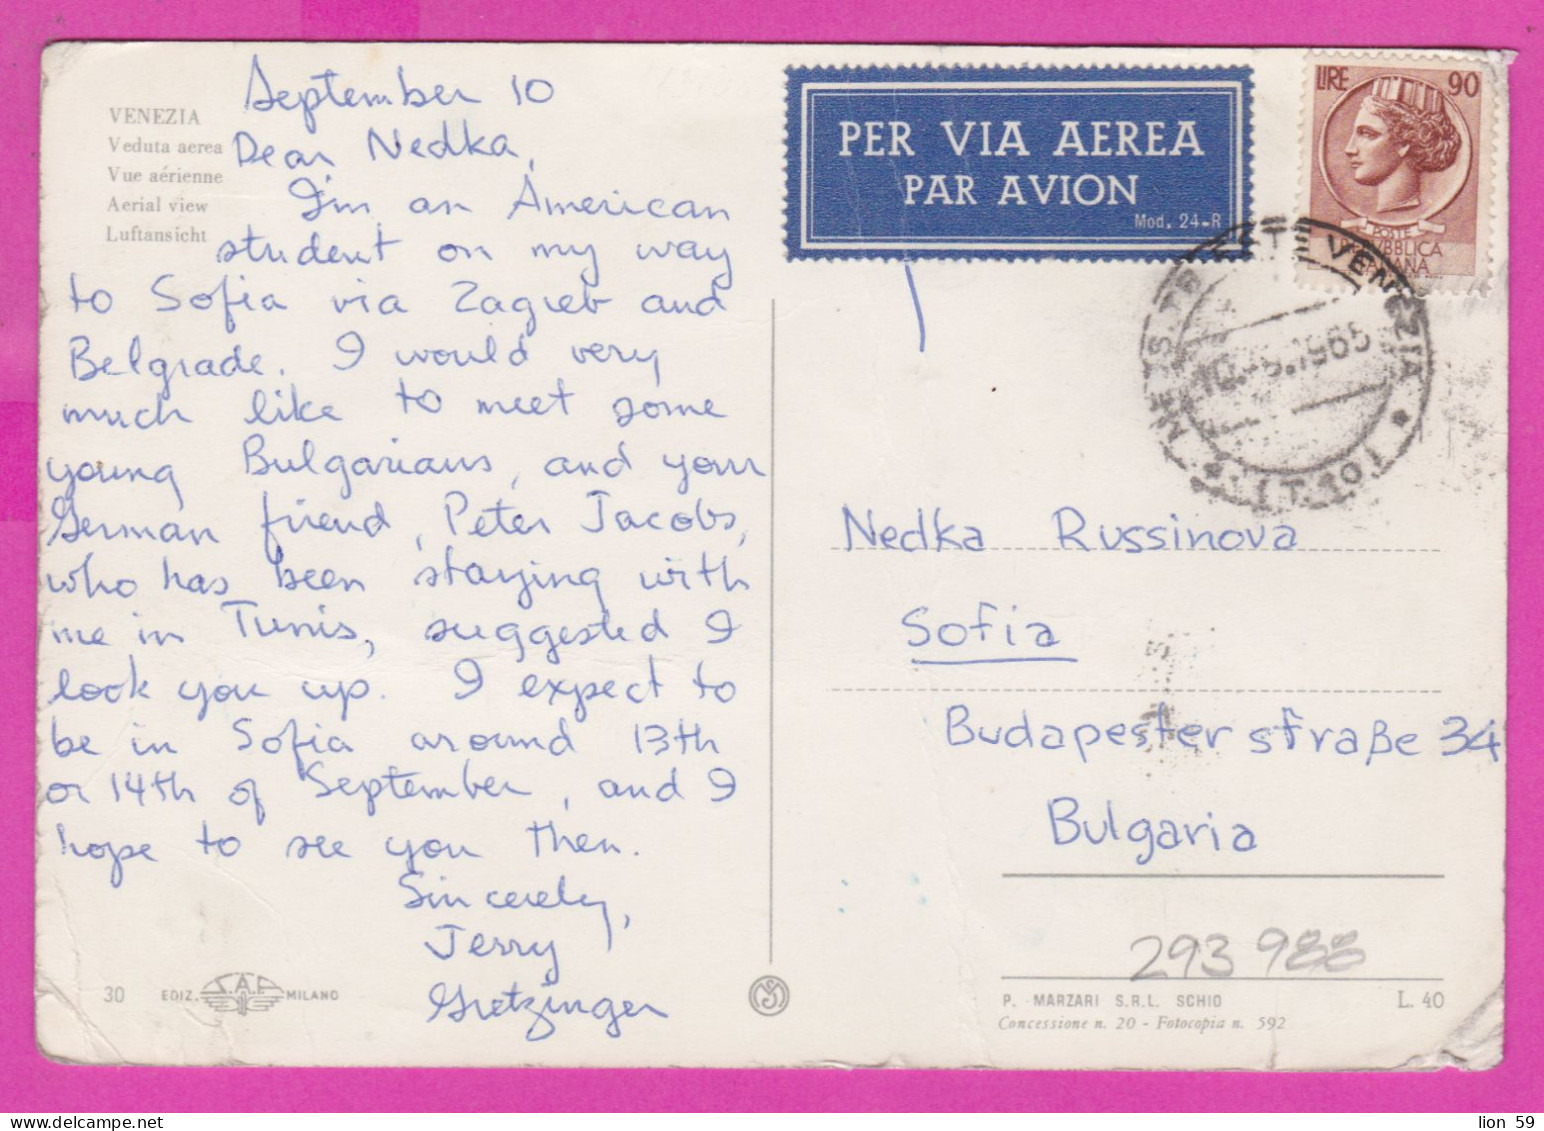 VENEZIA
Veduta aerea
Vue aérienne
Aerial view
Luftansicht
September 10
Dear Nedka,
I'm an American
student on my way
to Sofia via Zagreb and
Belgrade. I would very
much like to meet some
young Bulgarians, and your
German friend, Peter Jacobs,
who has been staying with
me in Tunis, suggested I
look you up. I expect to
be in Sofia around 13th
or 14th of September, and I
hope to see you then.
Sincerely,
Jerry
Gretzinger
30 EDIZ. S.A.F. MILANO
PER VIA AEREA
PAR AVION
Mod. 24-R
LIRE 90
POSTE
REPUBBLICA
ITALIANA
VENEZIA
1965
Nedka Russinova
Sofia
Budapester straße 34
Bulgaria
293 988
P. MARZARI S.R.L. SCHIO L. 40
Concessione n. 20 - Fotocopia n. 592
lion 59